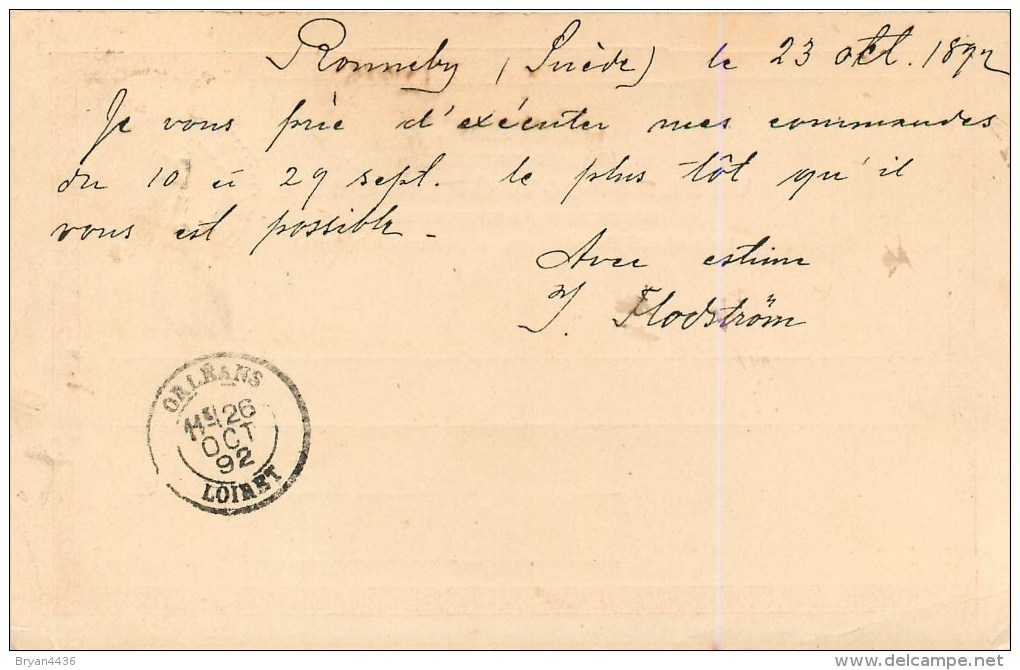 Ronneby (Suède) le 23 oct. 1892
Je vous prie d'exécuter mes commandes
du 10 et 29 sept. le plus tôt qu'il
vous est possible.
Avec estime
J. Flodström
ORLÉANS
26
OCT
92
LOIRET
Bryan4436
delcampe.net